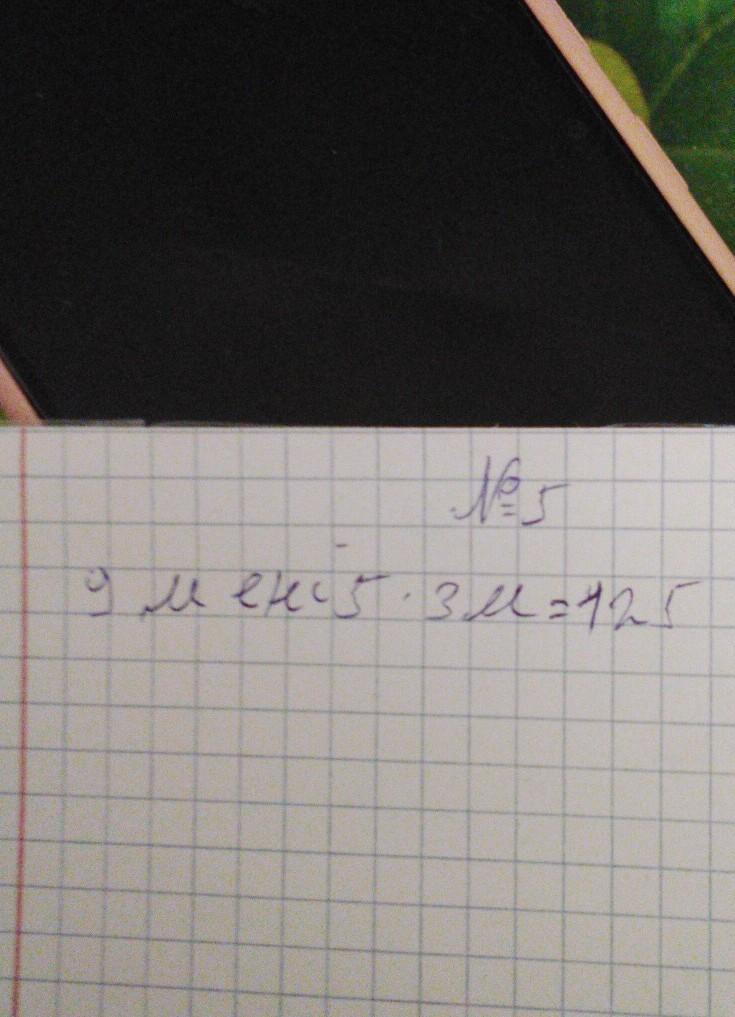 №5
9 м ені 5 · 3м=125